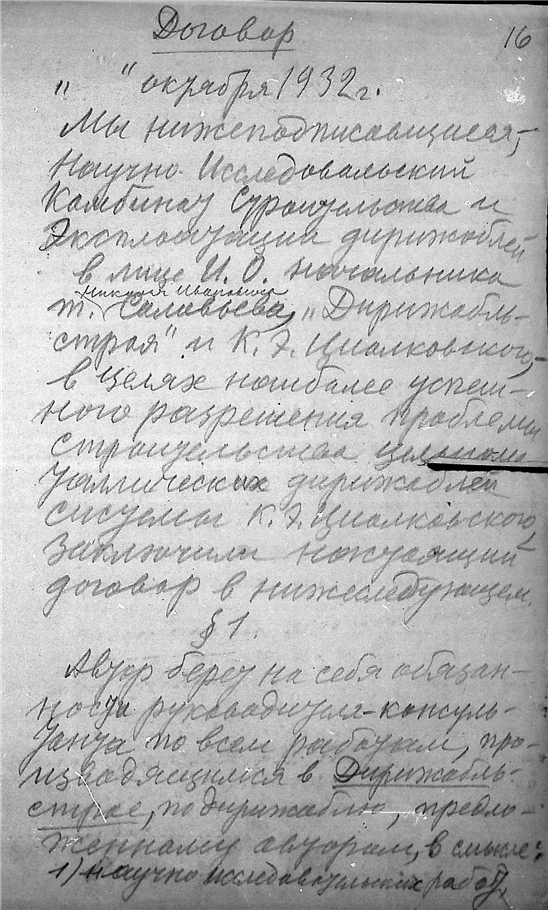 Договор
16
„ “ октября 1932 г.
Мы нижеподписавшиеся,
Научно Исследовальский
Комбинат Строительства и
Эксплоатации дирижаблей
в лице И. О. начальника
Николая Ивановича
т. Соловьева, „Дирижабль-
строя“ и К. Э. Циолковского,
в целях наиболее успеш-
ного разрешения проблемы
строительства цельноме
таллических дирижаблей
системы К. Э. Циолковского,
заключили настоящий
договор в нижеследующем.
§ 1.
Автор берет на себя обязан-
ности руководителя-консуль-
танта по всем работам, про-
изводящимся в Дирижабль-
строе, по дирижаблю, предло-
женному автором, в смысле:
1) Научно исследовательских работ,